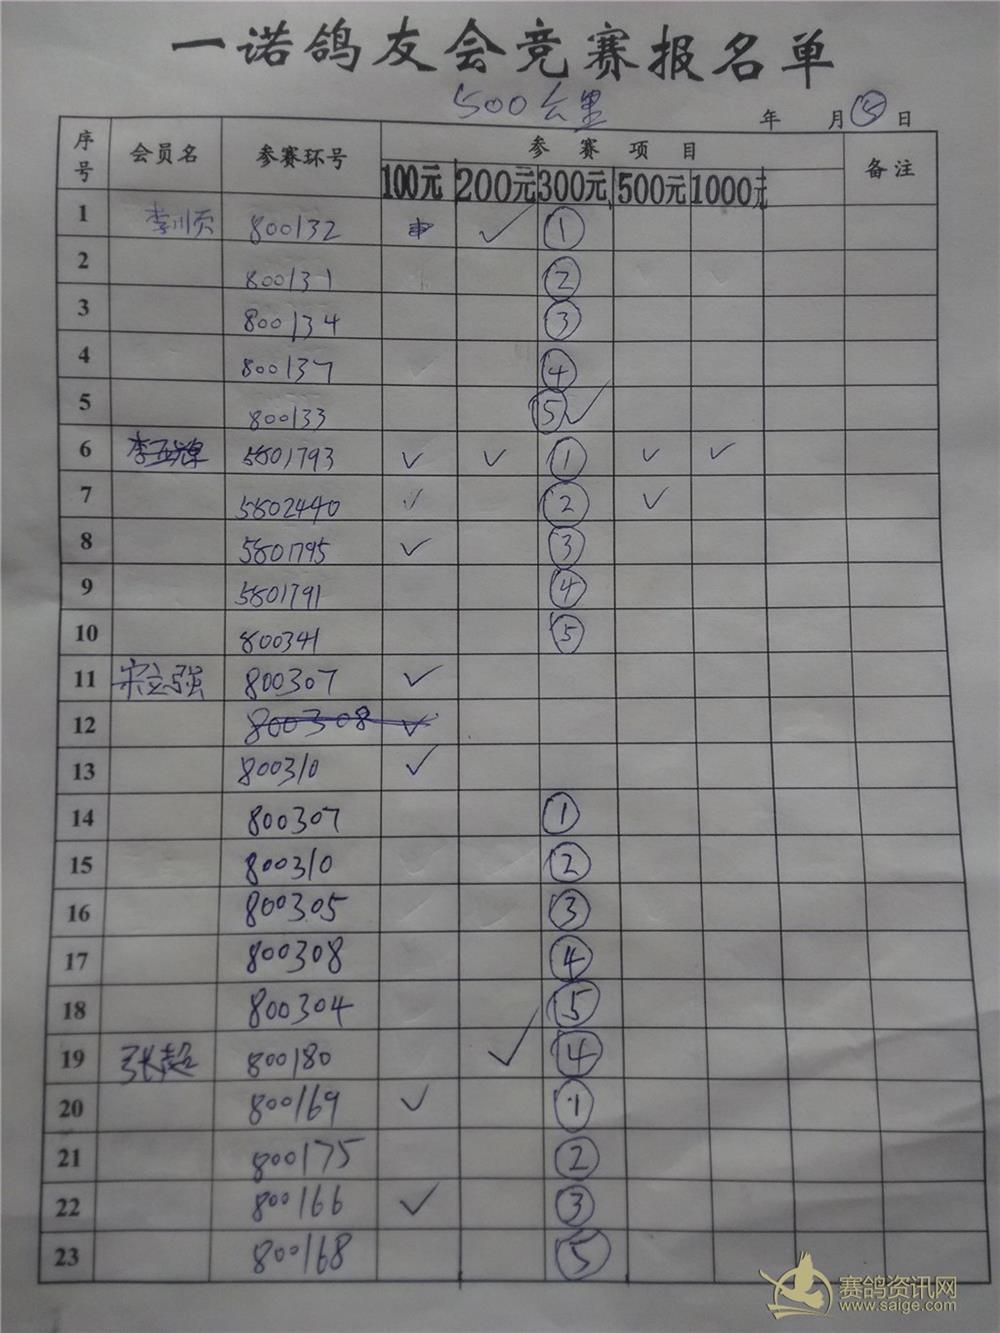 一诺鸽友会竞赛报名单
500公里 年 月 5 日
序号 会员名 参赛环号 参赛项目 备注
100元 200元 300元 500元 1000元
1 李川页 800132 ✓ ①
2 800131 ②
3 800134 ③
4 800137 ④
5 800133 ⑤ ✓
6 李 5801793 ✓ ✓ ① ✓ ✓
7 5802440 ✓ ② ✓
8 5801795 ✓ ③
9 5801791 ④
10 800341 ⑤
11 宋立强 800307 ✓
12 800308 ✓
13 800310 ✓
14 800307 ①
15 800310 ②
16 800305 ③
17 800308 ④
18 800304 ⑤
19 张超 800180 ✓ ④
20 800169 ✓ ①
21 800175 ②
22 800166 ✓ ③
23 800168 ⑤
赛鸽资讯网
www.saige.com